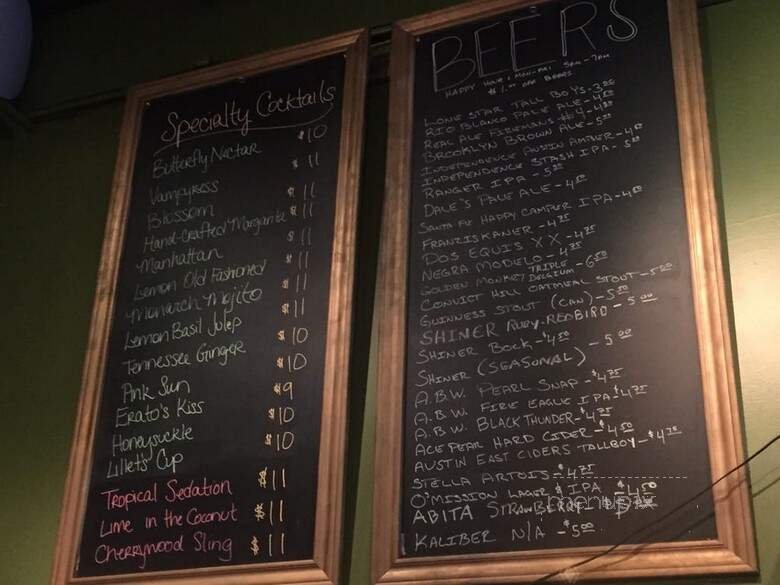 Specialty Cocktails
Butterfly Nectar $10
Vampyress $11
Blossom $11
Hand-Crafted Margarita $11
Manhattan $11
Lemon Old Fashioned $11
Monarch Mojito $11
Lemon Basil Julep $11
Tennessee Ginger $10
Pink Sun $10
Erato's Kiss $9
Honeysuckle $10
Lillet's Cup $10
Tropical Sedation $11
Lime in the Coconut $11
Cherrywood Sling $11
BEERS
HAPPY HOUR MON-FRI 5PM-7PM
$1.00 OFF BEERS
LONE STAR TALL BOYS-3.00
RIO BLANCO PALE ALE-4.50
REAL ALE FIREMANS #4-4.50
BROOKLYN BROWN ALE-5.00
INDEPENDENCE AUSTIN AMBER-4.50
INDEPENDENCE STASH IPA-5.00
RANGER IPA-5.00
DALE'S PALE ALE-4.50
SANTA FE HAPPY CAMPER IPA-4.50
FRANZISKANER-4.75
DOS EQUIS XX-4.75
NEGRA MODELO-4.75
GOLDEN MONKEY TRIPLE BELGIUM-6.50
CONVICT HILL OATMEAL STOUT-5.00
GUINNESS STOUT (CAN)-5.50
SHINER RUBY-REDBIRD-5.00
SHINER BOCK-4.50
SHINER (SEASONAL)-5.00
A.B.W. PEARL SNAP-$4.75
A.B.W. FIRE EAGLE IPA-$4.75
A.B.W. BLACK THUNDER-$4.75
ACE PEAR HARD CIDER-$4.50
AUSTIN EAST CIDERS TALLBOY-$4.75
STELLA ARTOIS-$4.75
O'MISSION LAGER & IPA $4.50
ABITA STRAWBERRY
KALIBER N/A-$5.00
menupix